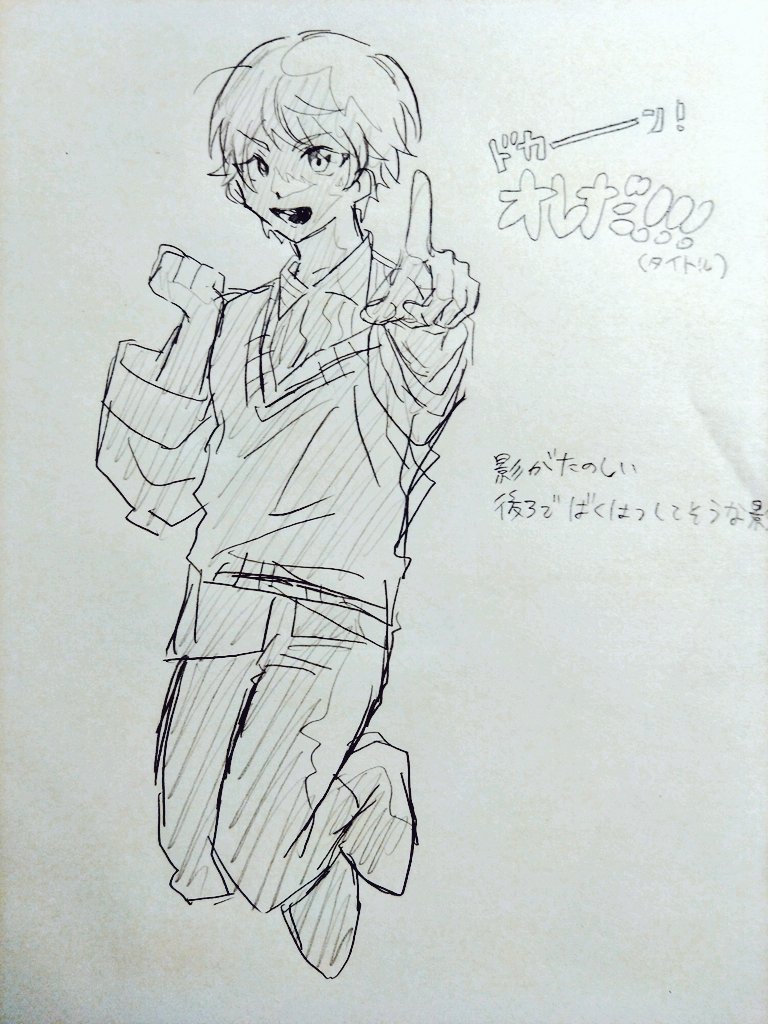 ドカーーン!
オレだ!!!
(タイトル)
影がたのしい
後ろでばくはつしてそうな影